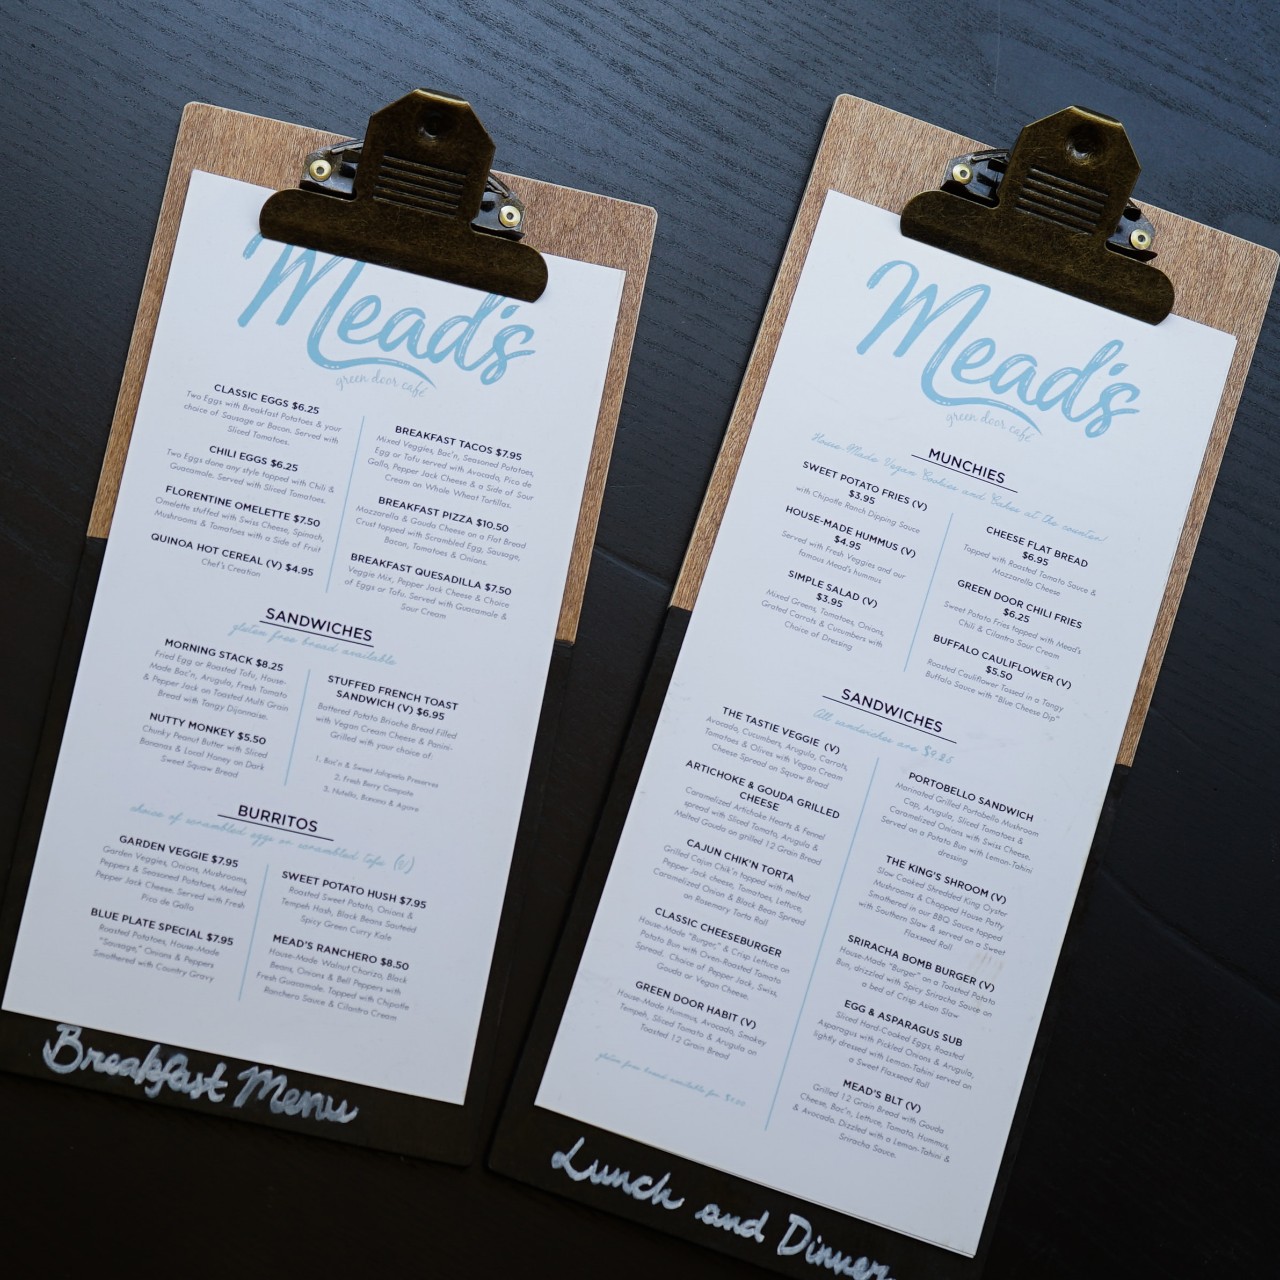 Mead's
green door café
CLASSIC EGGS $6.25
Two Eggs with Breakfast Potatoes & your
choice of Sausage or Bacon. Served with
Sliced Tomatoes.
CHILI EGGS $6.25
Two Eggs done any style topped with Chili &
Guacamole. Served with Sliced Tomatoes.
FLORENTINE OMELETTE $7.50
Omelette stuffed with Swiss Cheese, Spinach,
Mushrooms & Tomatoes with a Side of Fruit
QUINOA HOT CEREAL (V) $4.95
Chef's Creation
BREAKFAST TACOS $7.95
Mixed Veggies, Bac'n, Seasoned Potatoes,
Egg or Tofu served with Avocado, Pico de
Gallo, Pepper Jack Cheese & a Side of Sour
Cream on Whole Wheat Tortillas.
BREAKFAST PIZZA $10.50
Mozzarella & Gouda Cheese on a Flat Bread
Crust topped with Scrambled Egg, Sausage,
Bacon, Tomatoes & Onions.
BREAKFAST QUESADILLA $7.50
Veggie Mix, Pepper Jack Cheese & Choice
of Eggs or Tofu. Served with Guacamole &
Sour Cream
SANDWICHES
gluten free bread available
MORNING STACK $8.25
Fried Egg or Roasted Tofu, House-
Made Bac'n, Arugula, Fresh Tomato
& Pepper Jack on Toasted Multi Grain
Bread with Tangy Dijonnaise.
NUTTY MONKEY $5.50
Chunky Peanut Butter with Sliced
Bananas & Local Honey on Dark
Sweet Squaw Bread
STUFFED FRENCH TOAST
SANDWICH (V) $6.95
Battered Potato Brioche Bread Filled
with Vegan Cream Cheese & Panini-
Grilled with your choice of:
1. Bac'n & Sweet Jalapeño Preserves
2. Fresh Berry Compote
3. Nutella, Banana & Agave
BURRITOS
choice of scrambled eggs or scrambled tofu (v)
GARDEN VEGGIE $7.95
Garden Veggies, Onions, Mushrooms,
Peppers & Seasoned Potatoes, Melted
Pepper Jack Cheese. Served with Fresh
Pico de Gallo
BLUE PLATE SPECIAL $7.95
Roasted Potatoes, House-Made
"Sausage," Onions & Peppers
Smothered with Country Gravy
SWEET POTATO HUSH $7.95
Roasted Sweet Potato, Onions &
Tempeh Hash, Black Beans Sautéed
Spicy Green Curry Kale
MEAD'S RANCHERO $8.50
House-Made Walnut Chorizo, Black
Beans, Onions & Bell Peppers with
Fresh Guacamole. Topped with Chipotle
Ranchero Sauce & Cilantro Cream
Breakfast Menu
Mead's
green door café
MUNCHIES
House Made Vegan Cookies and Cakes at the counter
SWEET POTATO FRIES (V)
$3.95
with Chipotle Ranch Dipping Sauce
HOUSE-MADE HUMMUS (V)
$4.95
Served with Fresh Veggies and our
famous Mead's hummus
SIMPLE SALAD (V)
$3.95
Mixed Greens, Tomatoes, Onions,
Grated Carrots & Cucumbers with
Choice of Dressing
CHEESE FLAT BREAD
$6.95
Topped with Roasted Tomato Sauce &
Mozzarella Cheese
GREEN DOOR CHILI FRIES
$6.25
Sweet Potato Fries topped with Mead's
Chili & Cilantro Sour Cream
BUFFALO CAULIFLOWER (V)
$5.50
Roasted Cauliflower Tossed in a Tangy
Buffalo Sauce with "Blue Cheese Dip"
SANDWICHES
All sandwiches are $9.25
THE TASTIE VEGGIE (V)
Avocado, Cucumbers, Arugula, Carrots,
Tomatoes & Olives with Vegan Cream
Cheese Spread on Squaw Bread
ARTICHOKE & GOUDA GRILLED
CHEESE
Caramelized Artichoke Hearts & Fennel
spread with Sliced Tomato, Arugula &
Melted Gouda on grilled 12 Grain Bread
CAJUN CHIK'N TORTA
Grilled Cajun Chik'n topped with melted
Pepper Jack cheese, Tomatoes, Lettuce,
Caramelized Onion & Black Bean Spread
on Rosemary Torta Roll
CLASSIC CHEESEBURGER
House-Made "Burger," & Crisp Lettuce on
Potato Bun with Oven-Roasted Tomato
Spread. Choice of Pepper Jack, Swiss,
Gouda or Vegan Cheese.
GREEN DOOR HABIT (V)
House-Made Hummus, Avocado, Smokey
Tempeh, Sliced Tomato & Arugula on
Toasted 12 Grain Bread
gluten free bread available for $1.00
PORTOBELLO SANDWICH
Marinated Grilled Portobello Mushroom
Cap, Arugula, Sliced Tomatoes &
Caramelized Onions with Swiss Cheese.
Served on a Potato Bun with Lemon-Tahini
dressing
THE KING'S SHROOM (V)
Slow Cooked Shredded King Oyster
Mushrooms & Chopped House Patty
Smothered in our BBQ Sauce topped
with Southern Slaw & served on a Sweet
Flaxseed Roll
SRIRACHA BOMB BURGER (V)
House-Made "Burger" on a Toasted Potato
Bun, drizzled with Spicy Sriracha Sauce on
a bed of Crisp Asian Slaw
EGG & ASPARAGUS SUB
Sliced Hard-Cooked Eggs, Roasted
Asparagus with Pickled Onions & Arugula,
lightly dressed with Lemon-Tahini served on
a Sweet Flaxseed Roll
MEAD'S BLT (V)
Grilled 12 Grain Bread with Gouda
Cheese, Bac'n, Lettuce, Tomato, Hummus,
& Avocado, Dizzled with a Lemon-Tahini &
Sriracha Sauce.
Lunch and Dinner